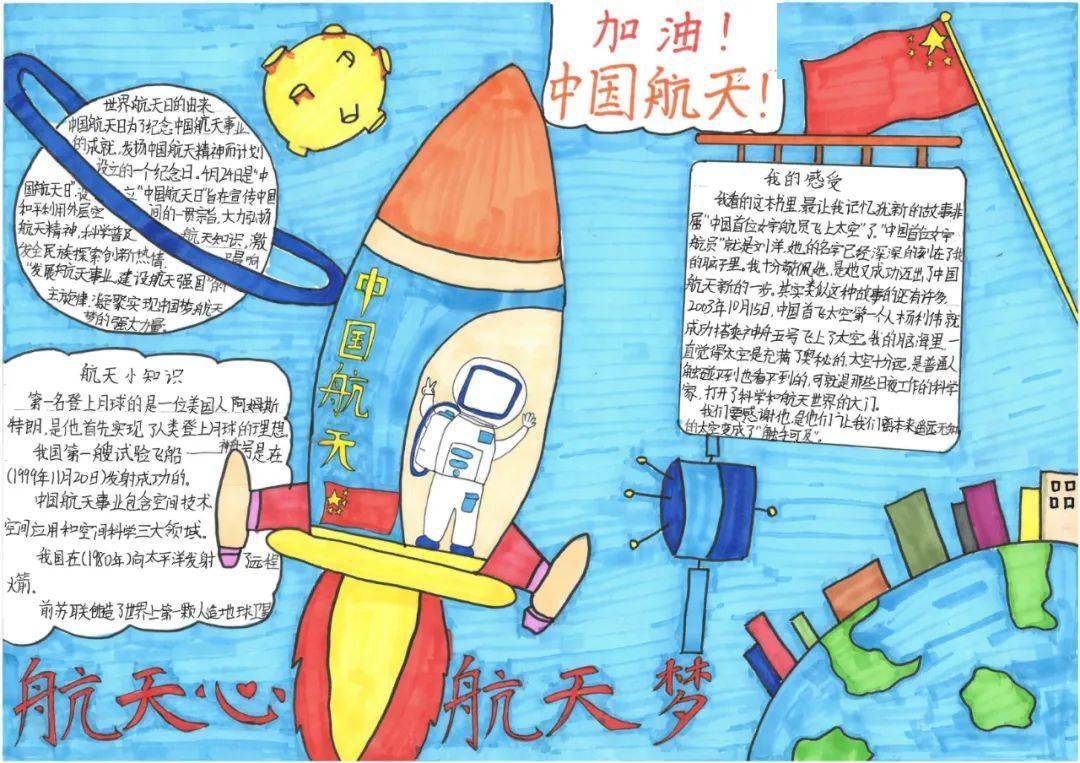 加油！
中国航天！
世界航天日的由来
中国航天日为了纪念中国航天事业
的成就，发扬中国航天精神而计划
设立的一个纪念日。4月24日是“中
国航天日”，设 立“中国航天日”旨在宣传中国
和平利用外层空 间的一贯宗旨，大力弘扬
航天精神，科学普及 航天知识，激
发全民族探索创新热情 唱响
“发展航天事业，建设航天强国”的
主旋律，凝聚实现中国梦，航天
梦的强大力量。
航天小知识
第一名登上月球的是一位美国人阿姆斯
特朗，是他首先实现了人类登上月球的理想。
我国第一艘试验飞船——神舟号是在
(1999年11月20日)发射成功的。
中国航天事业包含空间技术
空间应用和空间科学三大领域。
我国在(1980年)向太平洋发射 了远程
火箭。
前苏联创造了世界上第一颗人造地球卫星
中国航天
我的感受
我看的这本书里，最让我记忆犹新的故事非
属“中国首位女宇航员飞上太空”了，“中国首位女宇
航员”就是刘洋，她的名字已经深深的刻在了我
的脑子里。我十分敬佩她，是她又成功迈出了中国
航天新的一步。其实类似这种故事的还有许多
2003年10月15日，中国首飞太空第一人杨利伟就
成功搭乘神舟五号飞上了太空。我的脑海里一
直觉得太空是充满了奥秘的，太空十分远，是普通人
触碰不到也看不到的，可就是那些日夜工作的科学
家，打开了科学和航天世界的大门。
我们要感谢他，是他们让我们离本来遥远无知
的太空变成了“触手可及”。
航天心 航天梦